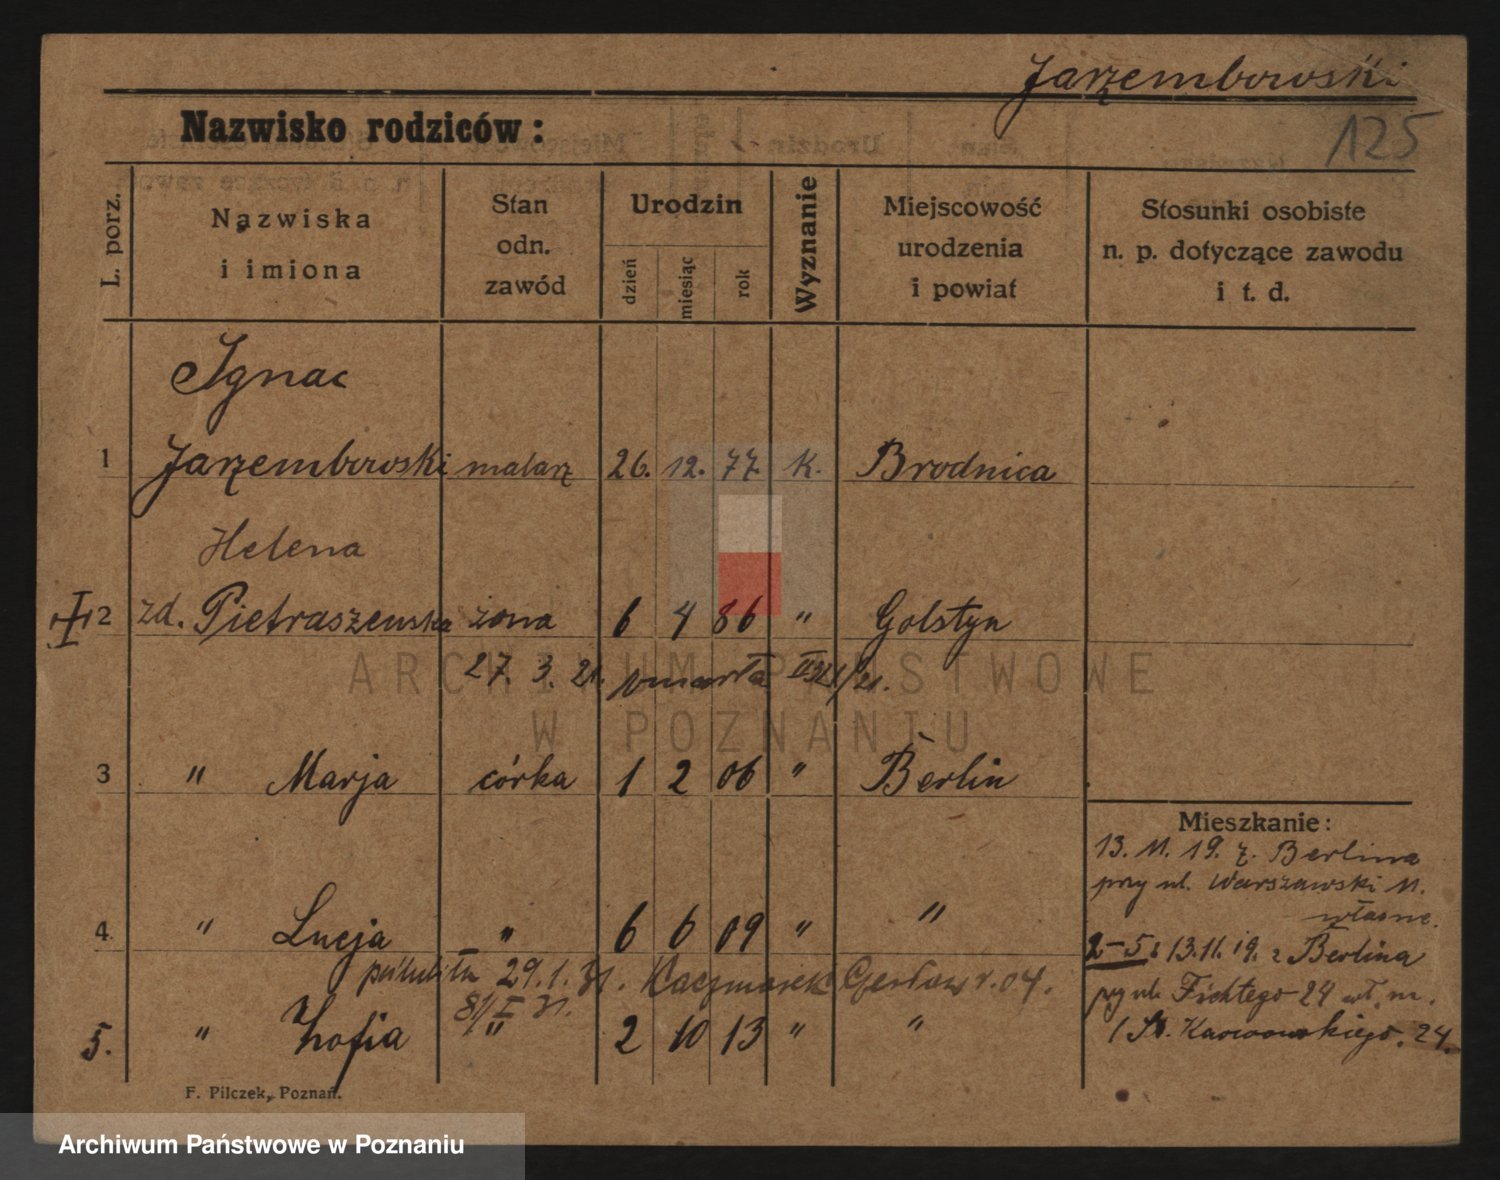 Jarzembowski
Nazwisko rodziców:
125
L. porz.
Nazwiska
i imiona
Stan
odn.
zawód
Urodzin
dzień
miesiąc
rok
Wyznanie
Miejscowość
urodzenia
i powiat
Stosunki osobiste
n. p. dotyczące zawodu
i t. d.
Ignac
1 Jarzembowski malarz 26. 12. 77. K. Brodnica
Helena
2 zd. Pietraszewska żona 6 4 86 " Golstyn
27. 3. 21. umarła
ARCHIWUM PAŃSTWOWE
W POZNANIU
3 " Marja córka 1 2 06 " Berlin
Mieszkanie:
13. 11. 19. z. Berlina
przy ul. Warszawski 11.
własne.
4. " Lucja " 6 6 09 " "
2-5: 13.11.19. z Berlina
29.1.31. Kaczmarek Czesław r. 04.
przy ul. Fichtego 24 wł. m.
5. " Zofia " 2 10 13 " "
24.
F. Pilczek, Poznań.
Archiwum Państwowe w Poznaniu